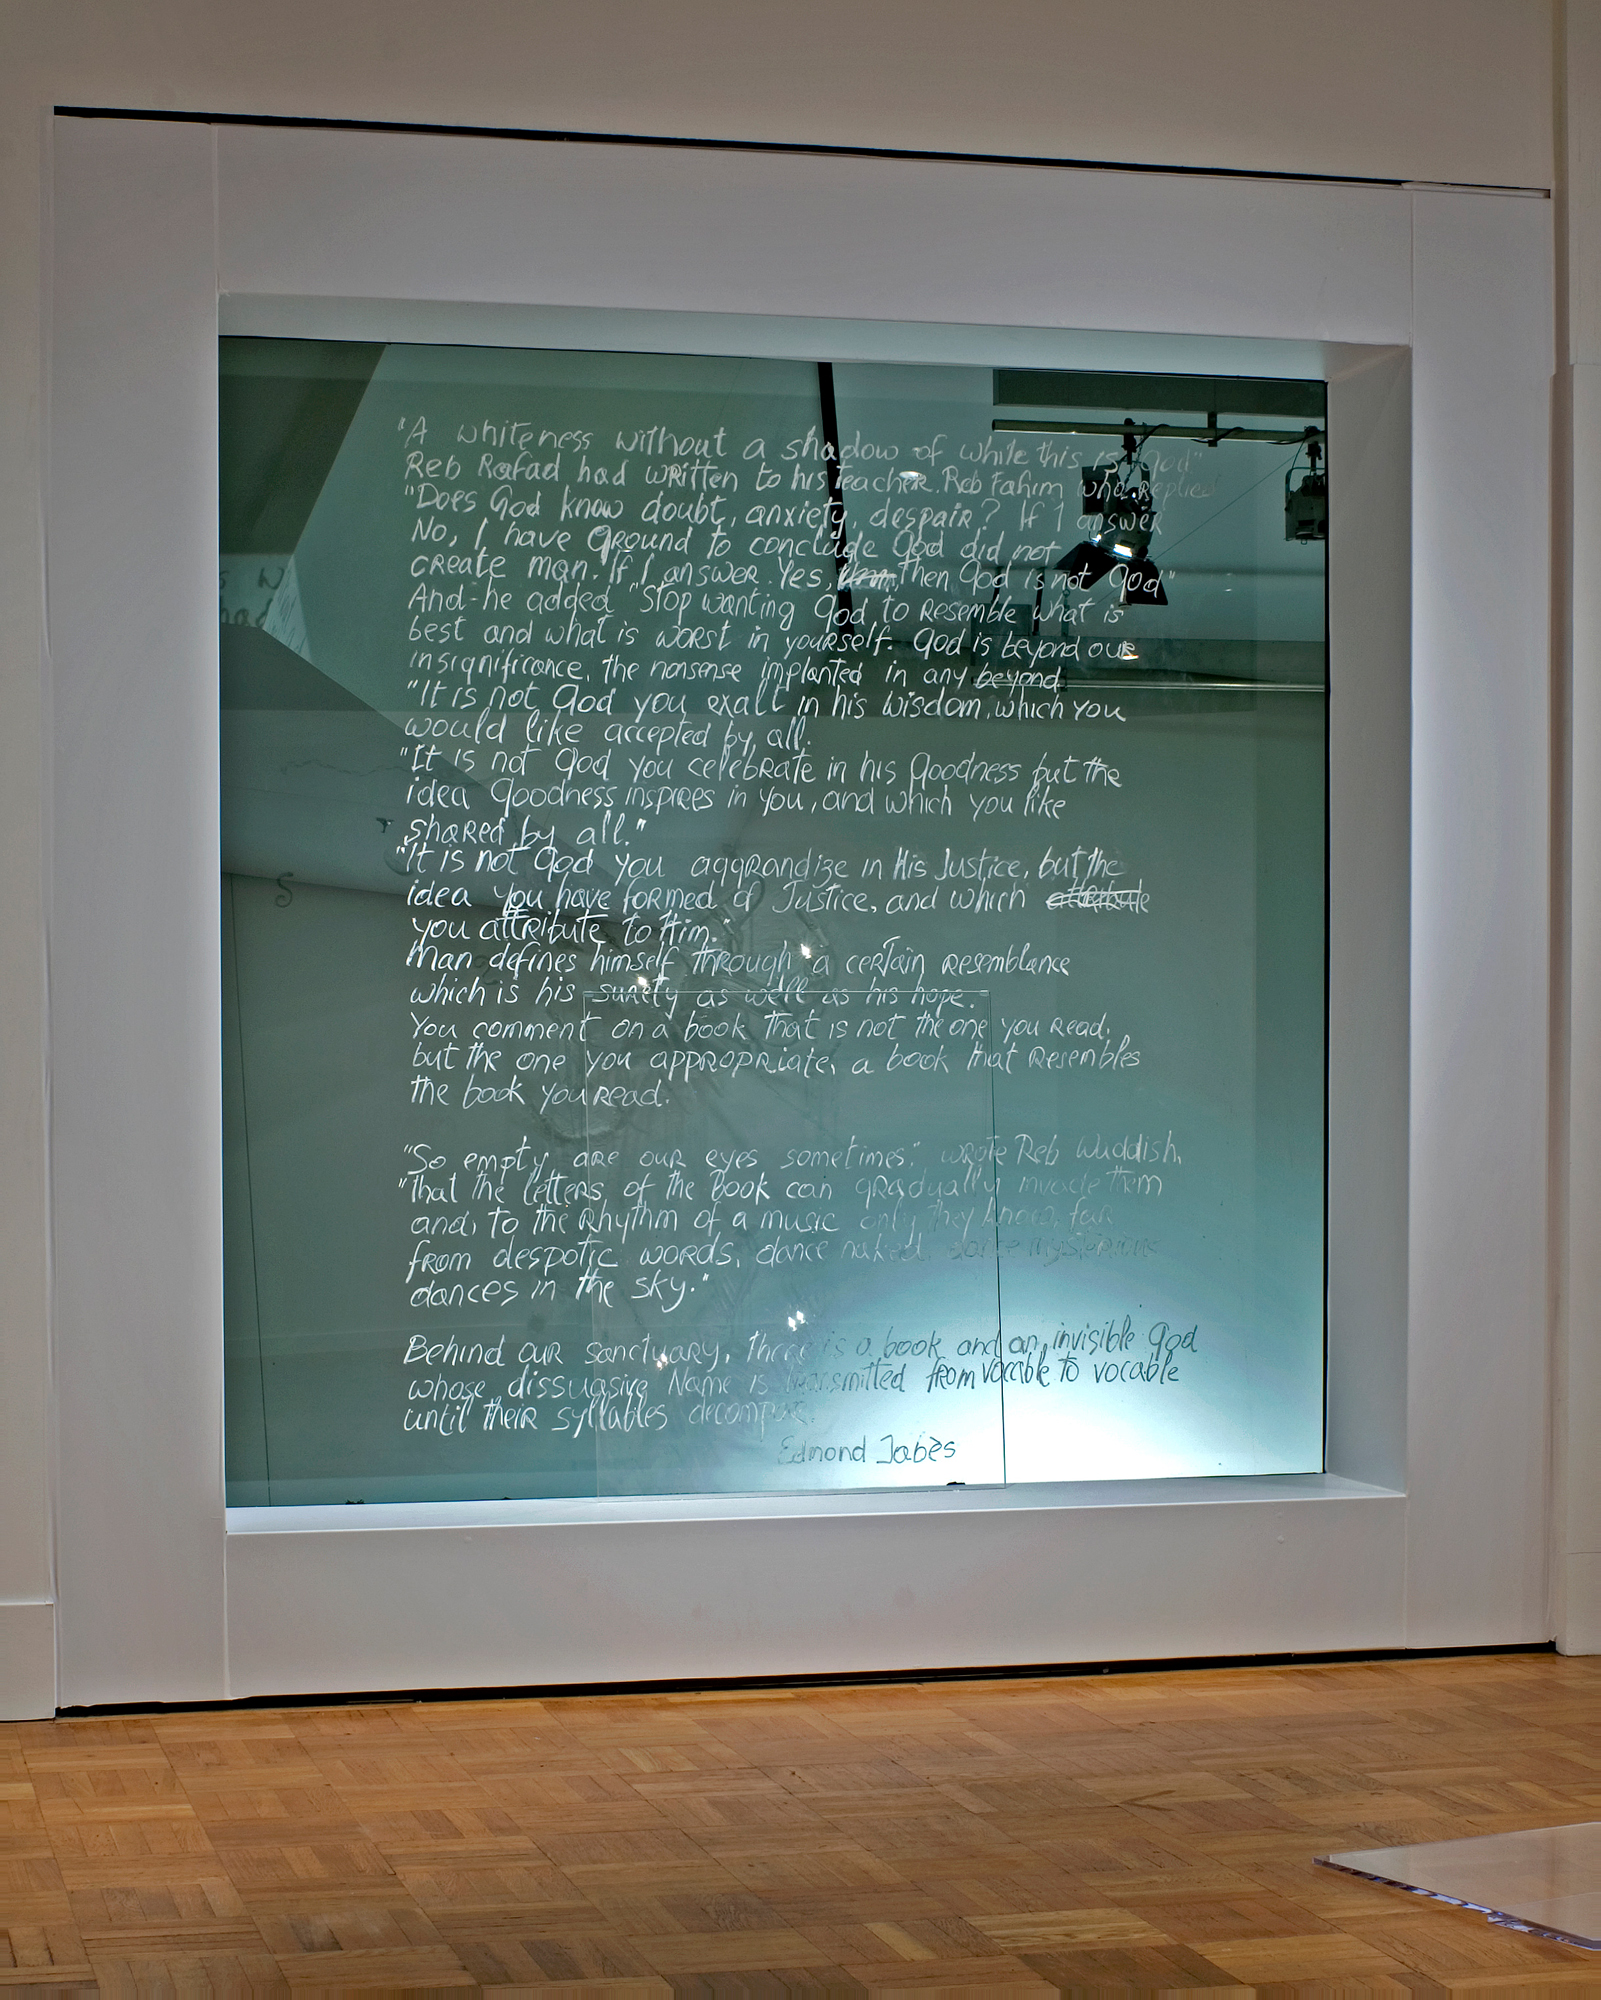 "A whiteness without a shadow of white this is God"
Reb Rafad had written to his teacher. Reb Fahim who replied
"Does God know doubt, anxiety, despair? If I answer
No, I have ground to conclude God did not
create man. If I answer Yes, then God is not God"
And he added "Stop wanting God to resemble what is
best and what is worst in yourself. God is beyond our
insignificance, the nonsense implanted in any beyond
"It is not God you exalt in his wisdom, which you
would like accepted by all.
"It is not God you celebrate in his goodness but the
idea goodness inspires in you, and which you like
shared by all."
"It is not God you aggrandize in His Justice, but the
idea you have formed of Justice, and which attribute
you attribute to Him."
Man defines himself through a certain resemblance
which is his surety as well as his hope.
You comment on a book that is not the one you read,
but the one you appropriate, a book that resembles
the book you read.
"So empty are our eyes sometimes." wrote Reb Wuddish,
"That the letters of the Book can gradually invade them
and, to the rhythm of a music only they know, far
from despotic words, dance naked, dance mysterious
dances in the sky."
Behind our sanctuary, there is a book and an invisible God
whose dissuasive Name is transmitted from vocable to vocable
until their syllables decompose.
Edmond Jabès